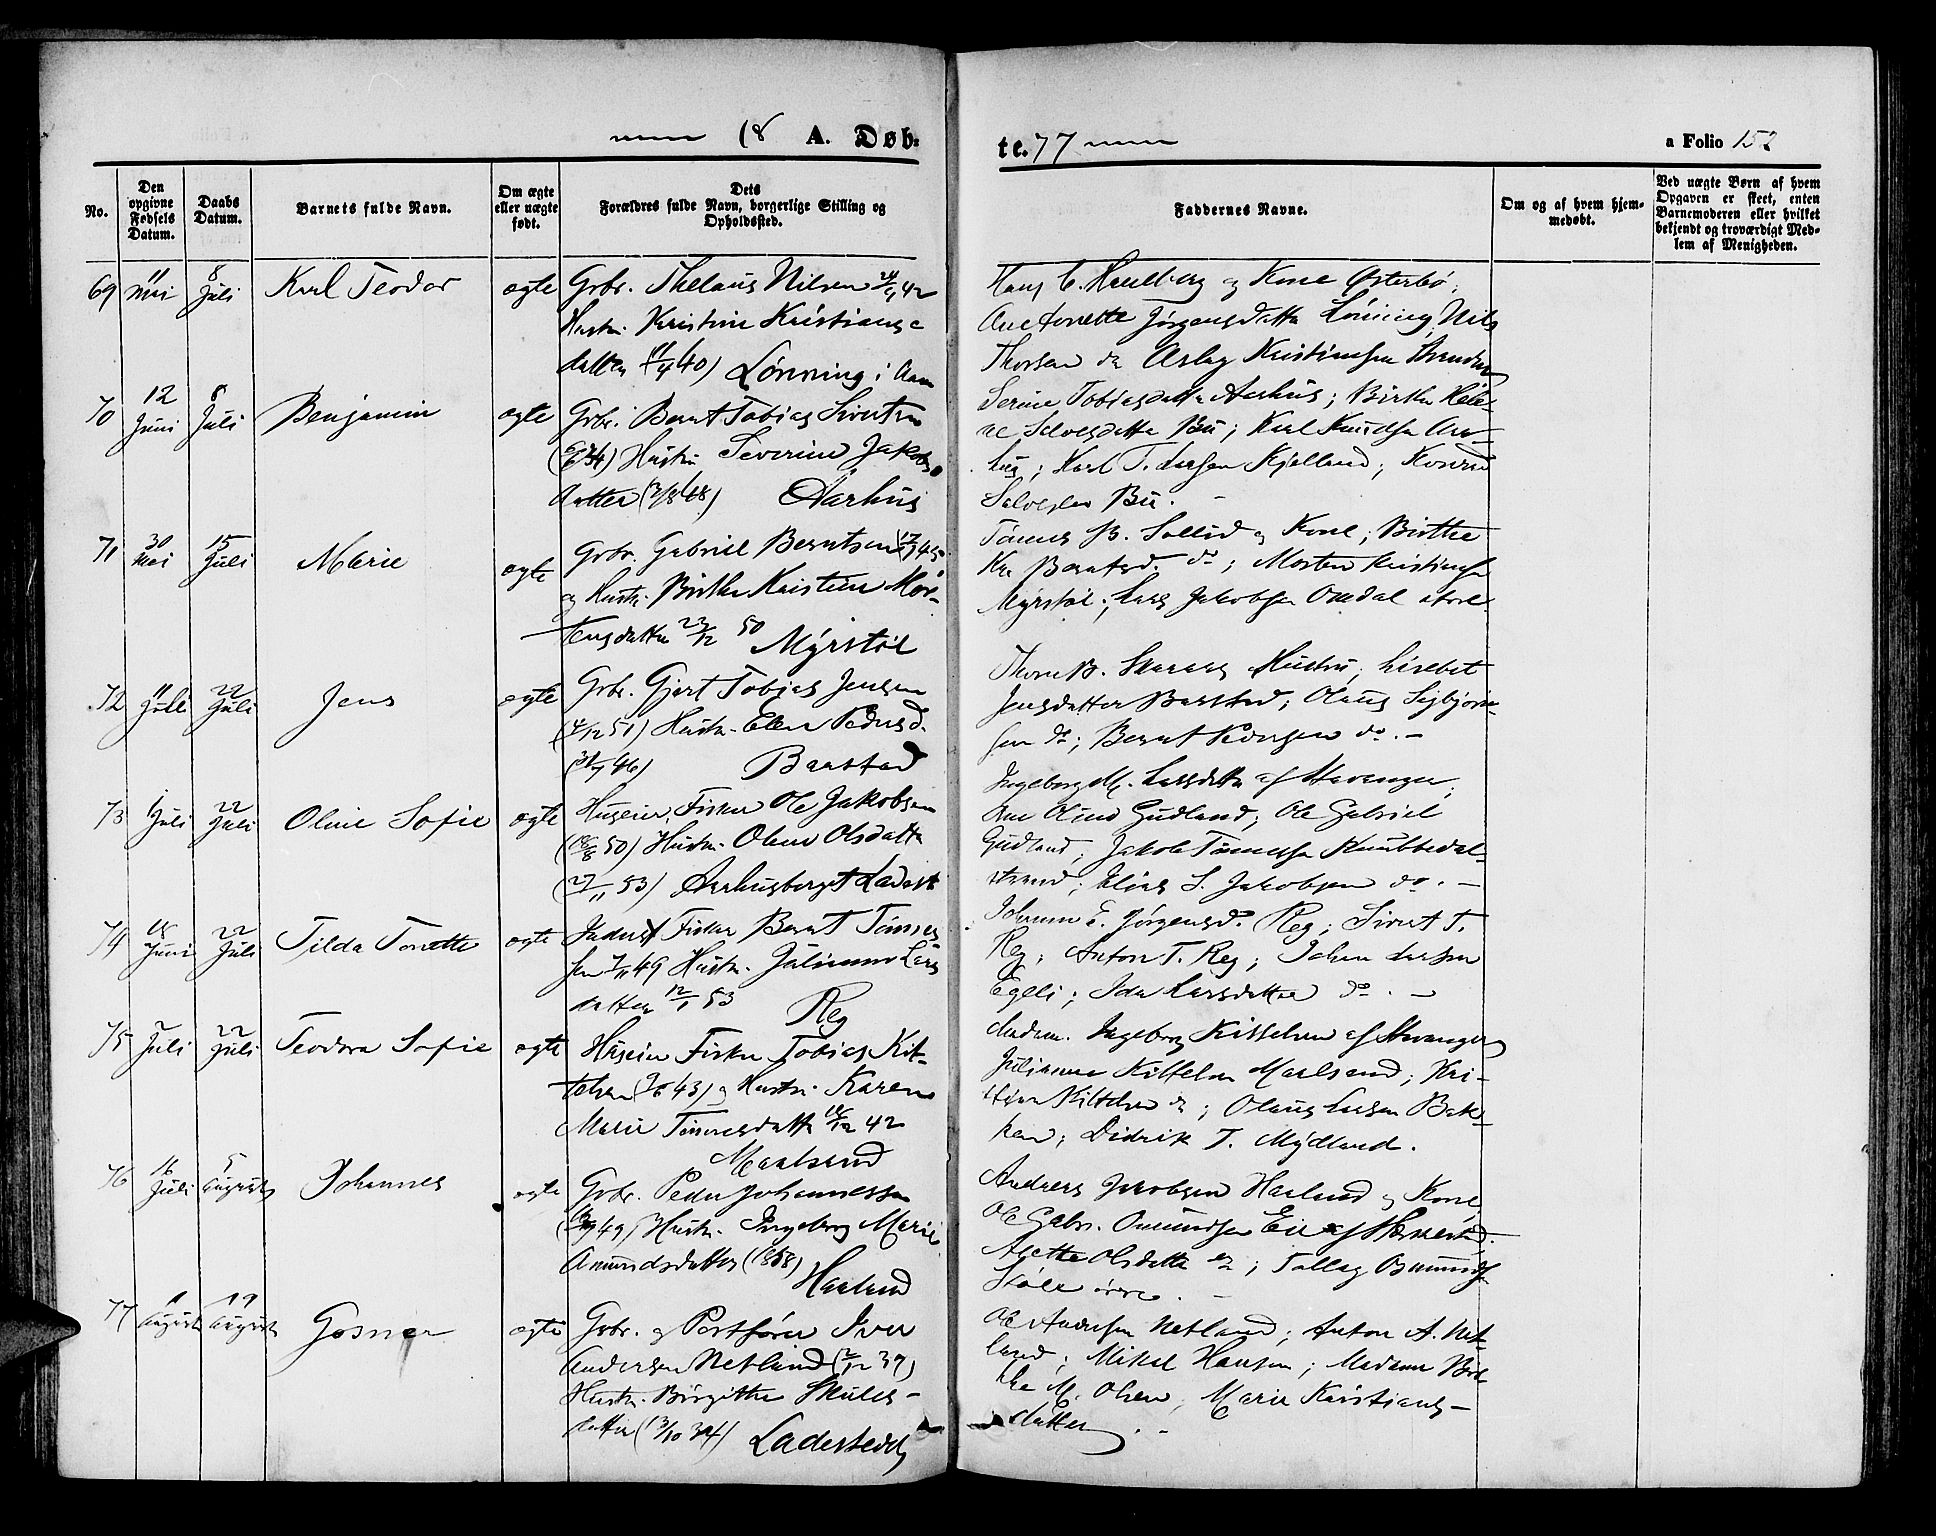 18 A. Døb-
te. 77
a Folio 152
No.
Den opgivne Fødsels Datum.
Daabs Datum.
Barnets fulde Navn.
Om ægte eller uægte født.
Dets Forældres fulde Navn, borgerlige Stilling og Opholdssted.
Faddernes Navne.
Om og af hvem hjem-
medøbt.
Ved uægte Børn af hvem
Opgaven er skeet, enten
Barnemoderen eller hvilket
bekjendt og troværdigt Med-
lem af Menigheden.
69 11 Mai 8 Juli Karl Teodor ægte Grbr. Thelaus Nilsen 42
Hustr. Kristine Kristians-
datter (11/4 40) Lønning i Aam
Hans C. Hauelberg og Kone Østerbø;
Ane Tonette Jørgensdatter Lønning, Nils
Thorsen do Aslag Kristiansen
70 12 Juni 8 Juli Benjamin ægte Grbr. Bernt Tobias Sivertsen
(34) Hustr. Severine Jakobs-
datter (48) Aarhus
Serine Tobiasdatter Aarhus; Birthe Hele-
ne Salvesdatter Bu; Karl Knudsen Aar-
hus; Karl T. Larsen Kjelland; Konrad
Salvesen Bu.
71 30 Mai 15 Juli Marie ægte Grbr. Gabriel Berntsen 45
og Hustr. Birthe Kristine Mor-
tensdatter 23/12 50 Myrstøl
Tønnes B. Sollid og Kone; Birthe
Kr. Berntsd. do; Morten Kristiansen
Myrstøl; Lars Jakobsen Omdal store
72 11 Juli 22 Juli Jens ægte Grbr. Gjert Tobias Jensen
(4/12 51) Hustr. Elen Pedersd.
(46) Barstad
Thore B. Skaraas Hustru; Lisebet
Jensdatter Barstad; Olaus Sigbjørn-
sen do; Bernt do.
73 1 Juli 22 Juli Oline Sofie ægte Huseier, Fisker Ole Jakobsen
(18/8 50) Hustr. Olene Olsdatter
(27/11 53) Aarhusberget Ladest
Ingeborg M. Larsdatter af Stavanger;
Ane Oline Gudland; Ole Gabriel
Gudland; Jakob Tønnesen Knubbedal-
strand; Elias S. Jakobsen do.
74 18 Juni 22 Juli Tilda Tonette ægte Inderst Fisker Bernt Tønnes-
sen 7/11 49 Hustr. Juliane Lars-
datter 12/1 53 Reg
Johanne E. Jørgensd. Reg; Sivert T.
Reg; Anton T. Reg; Johan Larsen
Egeli; Ida Larsdatter do.
75 2 Juli 22 Juli Teodora Sofie ægte Huseier Fisker Tobias Kit-
telsen (43) og Hustr. Karen
Marie Tønnesdatter 18/12 42
Maalsund
Madam. Ingeborg Kittelsen af Stavanger
Juliane Kittelsen Maalsund; Kri-
stian Kittelsen do; Olaus Larsen Bak-
ken; Didrik T. Mydland.
76 16 Juli 5 August Johannes ægte Grbr. Peder Johannessen
(49) Hustr. Ingeborg Marie
Amundsdatter (58)
Haaland
Andreas Jakobsen Haaland og Kone,
Ole Gabr. Omundsen Eie af
Agette Olsdatter do; Tallag Osmundsen
Støle øvre.
77 1 August 19 August Gosner ægte Grbr. og Postfører Iver
Andersen Netland (2/12 39)
Hustr. Birgitte Skules-
datter (13/10 34) Ladestedet
Ole Andersen Netland; Anton A. Net-
land; Mikal Hansen; Madam Bir-
the M. Olsen; Marie Kristians-
datter.